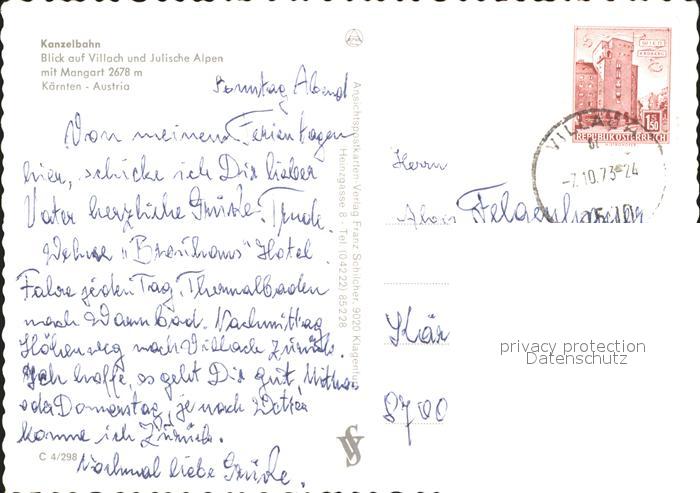 Kanzelbahn
Blick auf Villach und Julische Alpen
mit Mangart 2678 m
Kärnten - Austria
Sonntag Abend
Von meinem Ferientagen
hier, schicke ich Dir lieber
Vater herzliche Grüße. Trude.
Wohne "Breuhaus" Hotel.
Fahre jeden Tag Thermalbaden
nach Warmbad. Nachmittag
Höhenweg nach Villach zurück.
Ich hoffe, es geht Dir gut, Mittwo
oder Donnerstag, je nach Wetter
komme ich zurück.
Nochmal liebe Grüße.
C 4/298
Ansichtspostkarten-Verlag Franz Schilcher, 9020 Klagenfurt
Heinzgasse 8 - Tel. (04222) 85 2 28
REPUBLIK ÖSTERREICH
1.50
VILLACH 2
-7.10.73-24
9500
Herrn
Alois
8700
privacy protection
Datenschutz